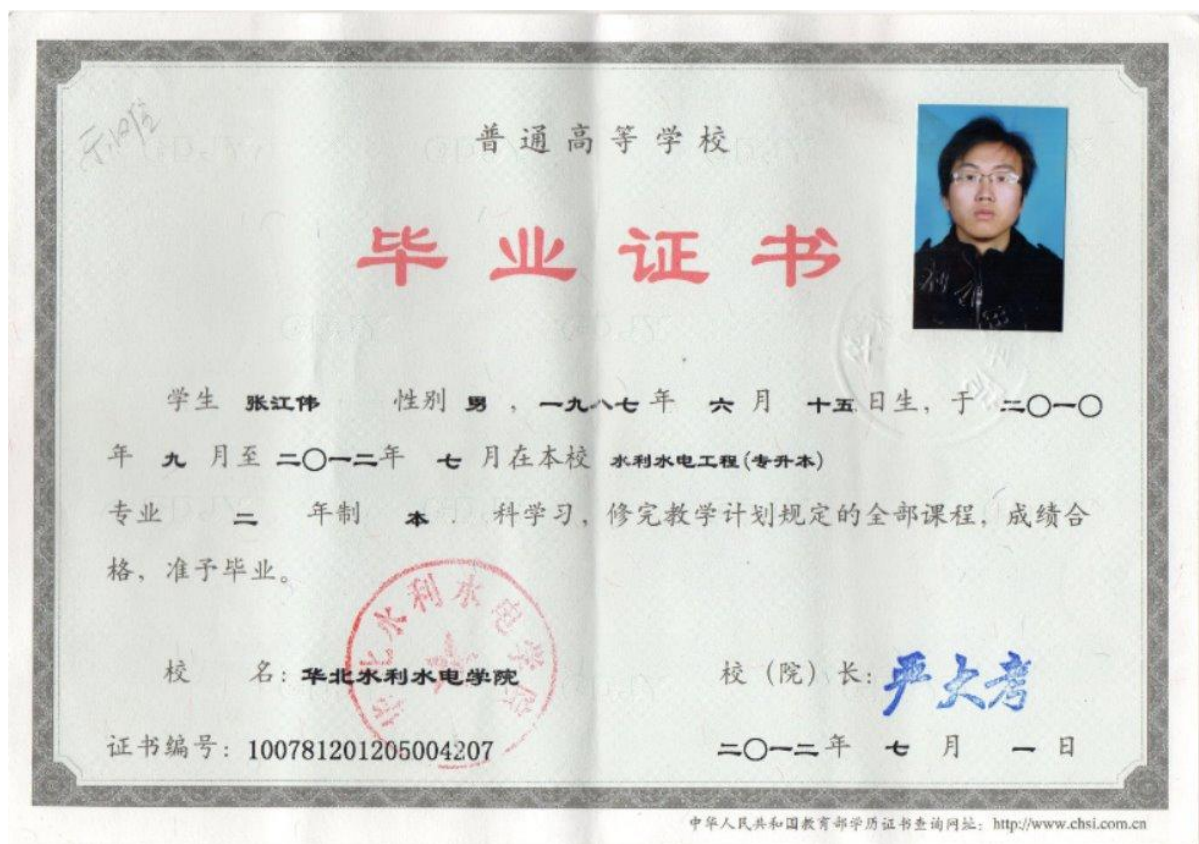 普通高等学校
毕业证书
学生 张江伟 性别 男 , 一九八七 年 六 月 十五 日生, 于 二〇一〇
年 九 月至 二〇一二年 七 月在本校 水利水电工程(专升本)
专业 二 年制 本 科学习, 修完教学计划规定的全部课程, 成绩合
格, 准予毕业。
华北水利水电学院
校 名: 华北水利水电学院
校 (院) 长: 严大考
证书编号: 100781201205004207
二〇一二年 七 月 一 日
中华人民共和国教育部学历证书查询网址: http://www.chsi.com.cn